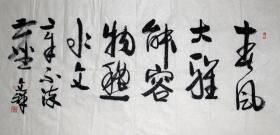 春風
大雅
能容
物秋
水文
章不染
塵